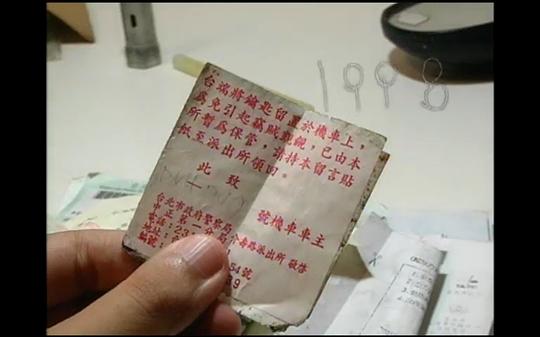 1998
台端將鑰匙留置於機車上，
為免引起竊賊覬覦，已由本
所暫為保管，請持本留言貼
紙至派出所領回。
此 致
號機車車主
台北市政府警察局
中正第一分局介壽派出所 敬啟
電話：23
地址： 54號
編號： 39